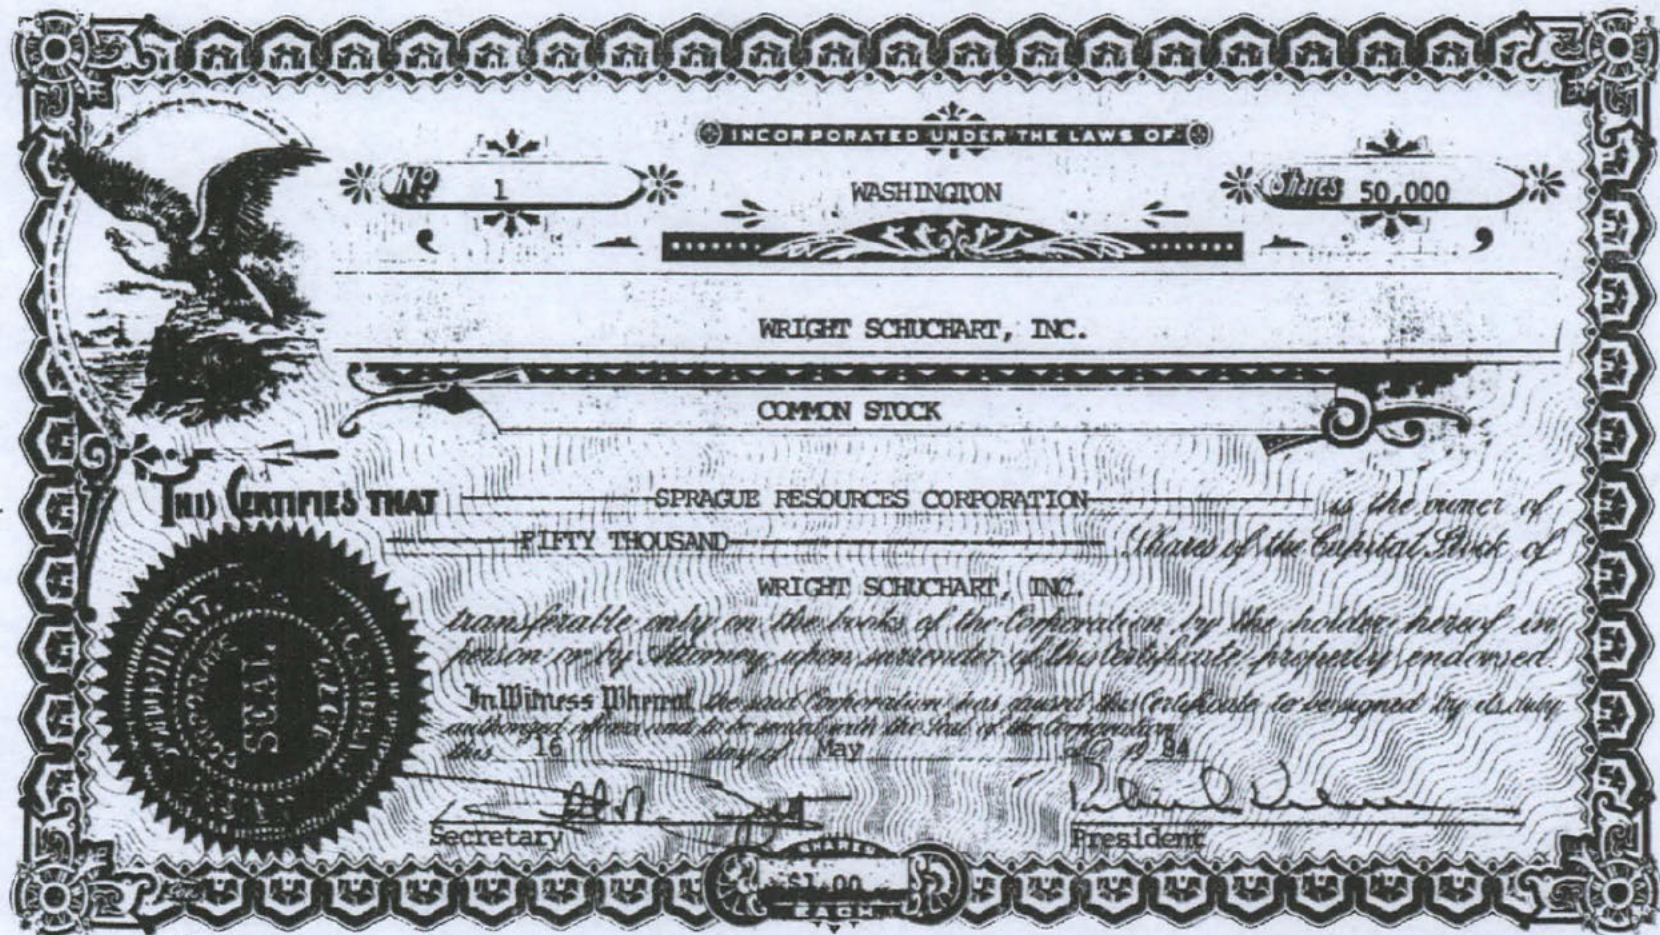 INCORPORATED UNDER THE LAWS OF
No 1
WASHINGTON
Shares 50,000
WRIGHT SCHUCHART, INC.
COMMON STOCK
THIS CERTIFIES THAT SPRAGUE RESOURCES CORPORATION is the owner of
FIFTY THOUSAND Shares of the Capital Stock of
WRIGHT SCHUCHART, INC.
transferable only on the books of the Corporation by the holder hereof in
person or by Attorney upon surrender of this Certificate properly endorsed.
In Witness Whereof, the said Corporation has caused this Certificate to be signed by its duly
authorized officers and to be sealed with the Seal of the Corporation
this 16 day of May A.D. 19 84
Secretary
President
SHARES
$1.00
EACH
SEAL
CORPORATE